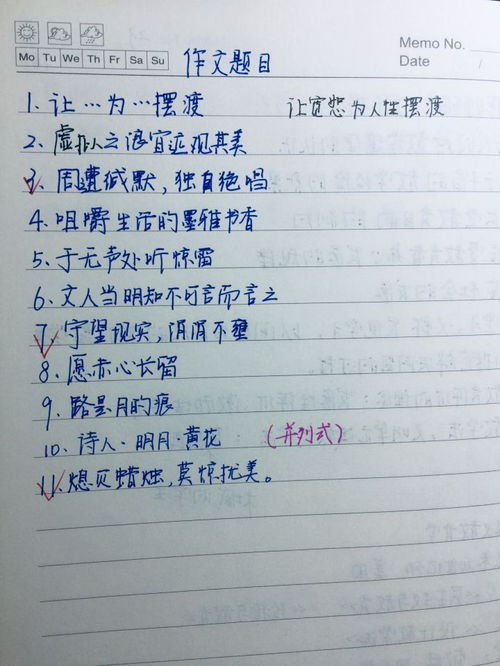 Memo No.
Mo Tu We Th Fr Sa Su
Date /
作文题目
1. 让…为…摆渡 让宽恕为人性摆渡
2. 虚拟之浪宜近观其美
3. 周遭缄默，独自绝唱
4. 咀嚼生活的墨雅书香
5. 于无声处听惊雷
6. 文人当明知不可言而言之
7. 守望现实，涓涓不壅
8. 愿赤心长留
9. 路是月的痕
10. 诗人·明月·黄花 (并列式)
11. 熄灭蜡烛，莫惊扰美。